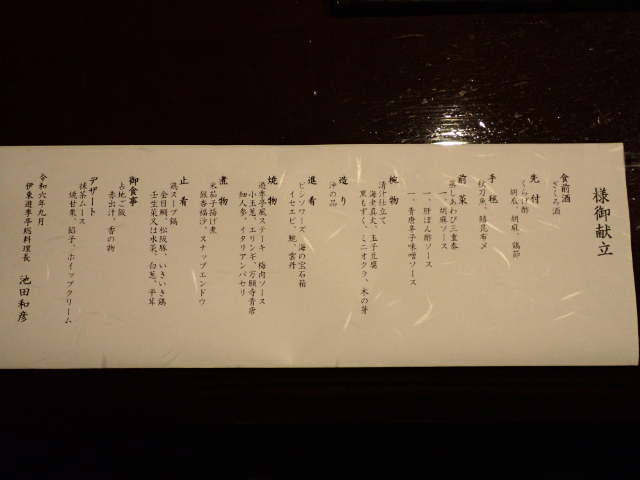 様御献立
食前酒
ざくろ酒
先付
くらげ酢
胡瓜、胡麻、鶏節
手毬
秋刀魚、鰭昆布〆
前菜
蒸しあわび三重奏
一、胡麻ソース
一、肝ぽん酢ソース
一、青唐辛子味噌ソース
椀物
清汁仕立て
海老真丈、玉子豆腐
黒もずく、ミニオクラ、木の芽
造り
沖の品
進肴
ビンソワーズ、海の宝石箱
イセエビ、鮑、雲丹
焼物
遊季亭風ステーキ 梅肉ソース
小玉葱、エリンギ、万願寺青唐
細人参、イタリアンパセリ
煮物
米茄子揚げ煮
銀杏福沙、スナップエンドウ
止肴
鶏スープ鍋
金目鯛、松阪豚、いきいき鶏
壬生菜又は水菜、白葱、平茸
御食事
占地ご飯
赤出汁、香の物
デザート
抹茶ムース
焼甘栗、餡子、ホイップクリーム
令和六年九月
伊東遊季亭総料理長 池田和彦